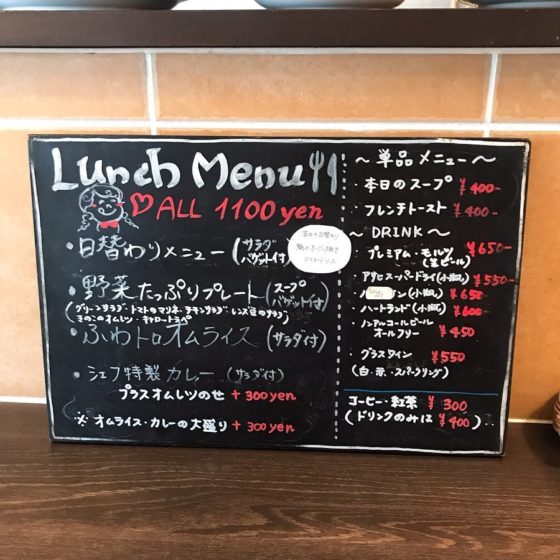 Lunch Menu
ALL 1100yen
・日替わりメニュー (サラダ バゲット付)
本日の日替わり
・野菜たっぷりプレート (スープ バゲット付)
(グリーンサラダ・トマトのマリネ・チキンサラダ・レンズ豆のサラダ
きのこのオムレツ・キャロットラペ)
・ふわトロオムライス (サラダ付)
・シェフ特製カレー (サラダ付)
プラスオムレツのせ +300yen
※ オムライス・カレーの大盛り +300yen
～単品メニュー～
・本日のスープ ¥400-
・フレンチトースト ¥400-
～DRINK～
・プレミアム・モルツ (生ビール) ¥650-
・アサヒスーパードライ(小瓶) ¥550-
(小瓶) ¥650
・ハートランド(小瓶) ¥600-
・ノンアルコールビール オールフリー ¥450
・グラスワイン ¥550
(白・赤・スパークリング)
コーヒー・紅茶 ¥300
(ドリンクのみは ¥400)